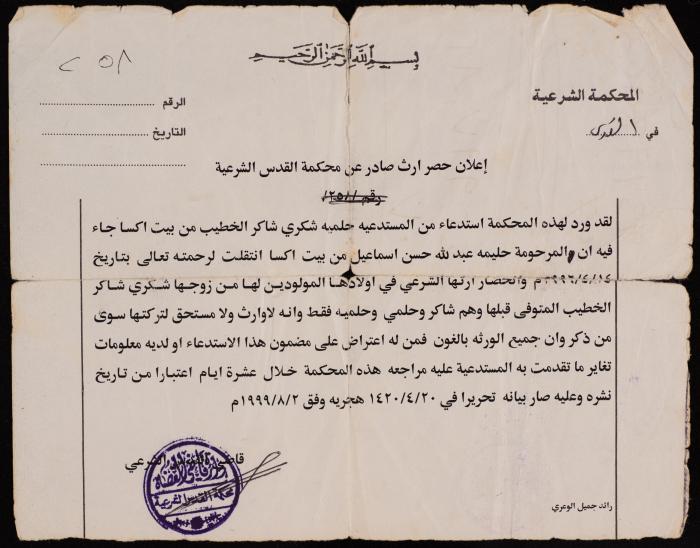 ٢٥٨
بسم الله الرحمن الرحيم
المحكمة الشرعية
في القدس
الرقم ................................
التاريخ ................................
................................
إعلان حصر ارث صادر عن محكمة القدس الشرعية
لقد ورد لهذه المحكمة استدعاء من المستدعيه حلميه شكري شاكر الخطيب من بيت اكسا جاء
فيه ان المرحومة حليمه عبد لله حسن اسماعيل من بيت اكسا انتقلت لرحمته تعالى بتاريخ
١٩٩٦/٤/١٤م وانحصار ارثها الشرعي في اولادها المولودين لها من زوجها شكري شاكر
الخطيب المتوفى قبلها وهم شاكر وحلمي وحلميه فقط وانه لاوارث ولا مستحق لتركتها سوى
من ذكر وان جميع الورثه بالغون فمن له اعتراض على مضمون هذا الاستدعاء او لديه معلومات
تغاير ما تقدمت به المستدعية عليه مراجعه هذه المحكمة خلال عشرة ايام اعتبارا من تاريخ
نشره وعليه صار بيانه تحريرا في ١٤٢٠/٤/٢٠ هجريه وفق ١٩٩٩/٨/٢م
قاضي القدس الشرعي
محكمة القدس الشرعية
رائد جميل الوعري